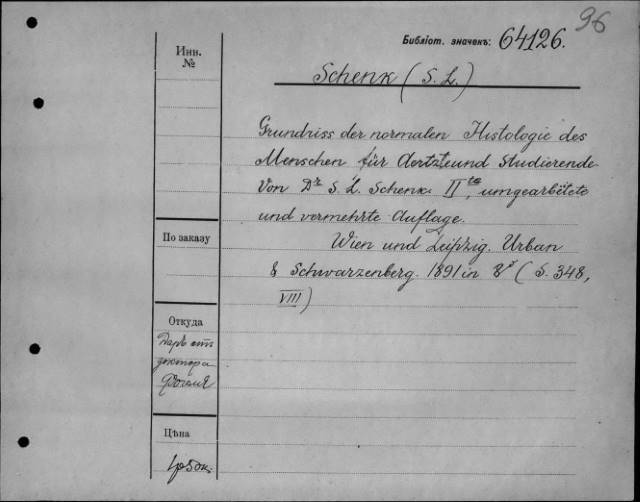 96
Библіот. значекъ: 64126.
Инв.
№
Schenk (S. L.)
Grundriss der normalen Histologie des
Menschen für Aertzte und Studierende
Von Dr S. L. Schenk. IIte, umgearbeitete
und vermehrte Auflage.
Wien und Leipzig. Urban
& Schwarzenberg. 1891 in 8° (S. 348,
VIII)
По заказу
Откуда
Даръ отъ
доктора
Цѣна